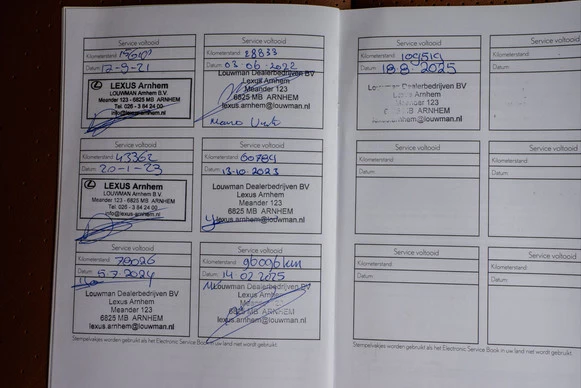 Service voltooid
Kilometerstand:
Datum: 17-9-21
LEXUS Arnhem
LOUWMAN Arnhem B.V.
Meander 123 - 6825 MB ARNHEM
Tel. 026 - 3 64 24 00
info@lexus-arnhem.nl
Service voltooid
Kilometerstand: 28833
Datum: 03-06-2022
Louwman Dealerbedrijven BV
Lexus Arnhem
Meander 123
6825 MB ARNHEM
lexus.arnhem@louwman.nl
Service voltooid
Kilometerstand: 43362
Datum: 20-1-23
LEXUS Arnhem
LOUWMAN Arnhem B.V.
Meander 123 - 6825 MB ARNHEM
Tel. 026 - 3 64 24 00
info@lexus-arnhem.nl
Service voltooid
Kilometerstand: 60784
Datum: 13-10-2023
Louwman Dealerbedrijven BV
Lexus Arnhem
Meander 123
6825 MB ARNHEM
lexus.arnhem@louwman.nl
Service voltooid
Kilometerstand: 79026
Datum: 5.7.2024
Louwman Dealerbedrijven BV
Lexus Arnhem
Meander 123
6825 MB ARNHEM
lexus.arnhem@louwman.nl
Service voltooid
Kilometerstand:
Datum: 14 02.2025
Louwman Dealerbedrijven BV
Lexus Arnhem
Meander 123
6825 MB ARNHEM
lexus.arnhem@louwman.nl
Stempelvakjes worden gebruikt als het Electronic Service Book in uw land niet wordt gebruikt.
Service voltooid
Kilometerstand: 109519
Datum: 18.8.2025
Dealerbedrijven BV
Lexus Arnhem
Meander 123
6825 MB ARNHEM
louwman.nl
Service voltooid
Kilometerstand:
Datum:
Service voltooid
Kilometerstand:
Datum:
Service voltooid
Kilometerstand:
Datum:
Service voltooid
Kilometerstand:
Datum:
Service voltooid
Kilometerstand:
Datum:
Stempelvakjes worden gebruikt als het Electronic Service Book in uw land niet wordt gebruikt.